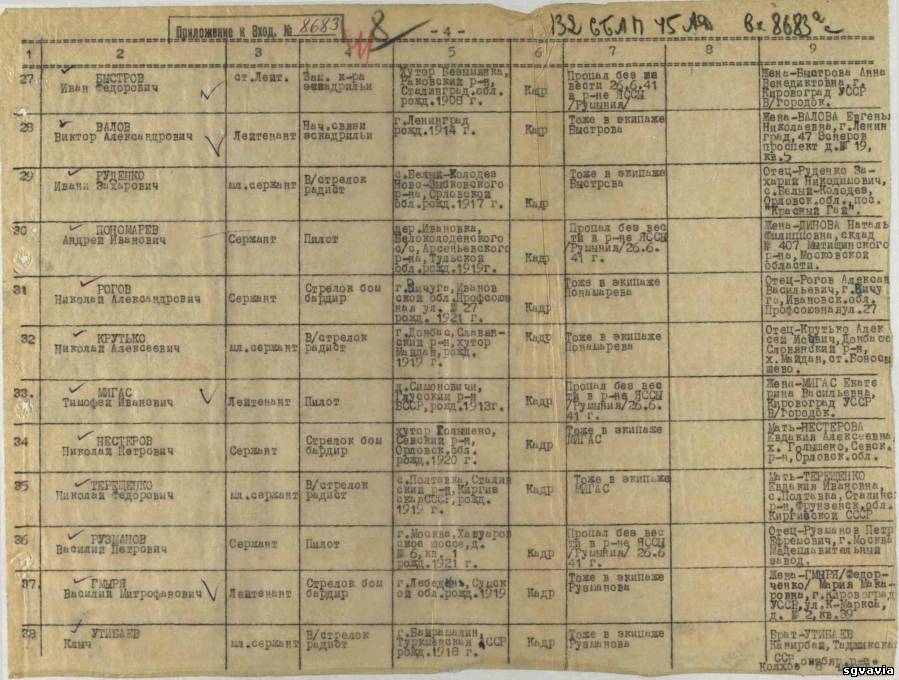 Приложение к Вход. № 8683
8
- 4 -
132 СБАП 45 АД
Вх 8683а
1 2 3 4 5 6 7 8 9
27
БЫСТРОВ
Иван Федорович
ст.Лейт.
Зам. к-ра
эскадрильи
Хутор Безымянка,
Раковский р-н,
Сталинград.обл.
рожд.1908 г.
Кадр
Пропал без
вести 26.6.41
в р-не ЯССЫ
/Румыния/
Жена-Быстрова Анна
Венедиктовна, г.
Кировоград УССР
В/Городок.
28
ВАЛОВ
Виктор Александрович
Лейтенант
Нач.связи
эскадрильи
г.Ленинград
рожд.1914 г.
Кадр
Тоже в экипаже
Быстрова
Жена-ВАЛОВА Евгень
Николаевна,г.Ленин
град,47 Эснеров
проспект д.№ 19,
кв.5
29
РУДЕНКО
Иван Захарович
мл.сержант
В/стрелок
радист
с.Белый-Колодев
Ново-Зыбковского
р-на,Орловской
обл.рожд.1917 г.
Кадр
Тоже в экипаже
Быстрова
Отец-Руденко За-
харий Никодимович,
с.Белый-Колодев,
Орловск.обл.,пос.
"Красный Гай".
30
ПОНОМАРЕВ
Андрей Иванович
Сержант
Пилот
дер.Ивановка,
Белоколоденского
с/с,Арсеньевского
р-на,Тульской
обл.рожд.1919г.
Кадр
Пропал без вес
ти в р-не ЯССЫ
/Румыния/26.6.
41 г.
Жена-ДИНОВА Наталь
Филипповна,склад
№ 407 Мытищинского
р-на,Московской
области.
31
РОГОВ
Николай Александрович
Сержант
Стрелок бом
бардир
г.Вичуга,Иванов
ской обл.Профсоюз
ная ул. № 27
рожд. 1921 г.
Кадр
Тоже в экипаже
Понамарева
Отец-Рогов Алексан
Васильевич,г.Вичу
га,Ивановск.обл.
Профсоюзнаяул.27
32
КРУТЬКО
Николай Алексеевич
мл.сержант
В/стрелок
радист
г.Донбас,Славян-
ский р-н,хутор
Майдан,рожд.
1919 г.
Кадр
Тоже в экипаже
Понамарева
Отец-Крутько Алек
сей Донбасс
Словянский р-н,
х.Майдан,ст.Боносы
шево.
33.
МИГАС
Тимофей Иванович
Лейтенант
Пилот
д.Симоновичи,
Глусский р-н
БССР,рожд.1913г.
Кадр
Пропал без вес
ти в р-не ЯССЫ
/Румыния/26.6.
41 г.
Жена-МИГАС Екате
рина Васильевна,
Кировоград УССР
В/Городок.
34
НЕСТЕРОВ
Николай Петрович
Сержант
Стрелок бом
бардир
хутор Голышено,
Севский р-н,
Орловск.обл.
рожд.1920 г.
Кадр
Тоже в экипаже
МИГАС
Мать-НЕСТЕРОВА
Евдакия Алексеевна,
х. Голышено, Севск.
р-н,Орловск.обл.
35
ТЕРЕЩЕНКО
Николай Федорович
мл.сержант
В/стрелок
радист
с.Полтавка,Сталин
ский р-н,Киргив
скаяСССР,рожд.
1919 г.
Кадр
Тоже в экипаже
МИГАС
Мать-ТЕРЕЩЕНКО
Евдакия Ивановна,
с.Полтавка,Сталинс
р-н,Фрунзенск.обл.
Киргивской СССР
36
РУЗМАНОВ
Василий Петрович
Сержант
Пилот
г.Москва,Хатуаров
ское шоссе,д.
№ 6,кв. 1
рожд.1921 г.
Кадр
Пропал без вес
ти в р-не ЯССЫ
/Румыния/ 26.6
41 г.
Отец-Рузманов Петр
Ефремович,г.Москва
Медеплавительный
завод.
37.
ГМЫРЯ
Василий Митрофанович
Лейтенант
Стрелок бом
бардир
г.Лебедень,Сумск
ой обл.рожд.1919
Кадр
Тоже в экипаже
Рузманова
Жена-ГМЫРЯ/Федор-
ченко/ Мария Мака
ровна,г.Кировоград
УССР,ул.К-Маркса,
д.№ 2,кв.39
38
УТИБАЕВ
Клыч
мл.сержант
В/стрелок
радист
г.Байрамалин,
Туркменская ССР
рожд.1918 г.
Кадр
Тоже в экипаже
Рузманова
Брат-УТИБАЕВ
Канирбай,Таджикска
ССР р-н
Колхоз
sgvavia